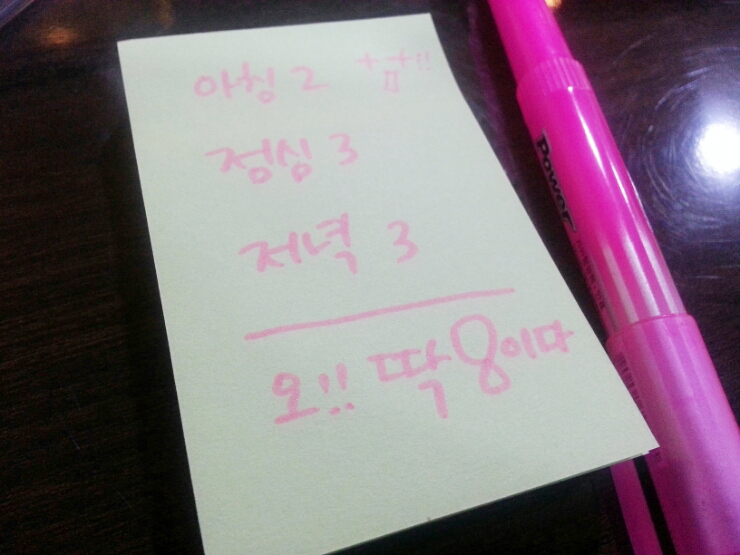 아침 2
점심 3
저녁 3
오!! 딱 8이다
Power